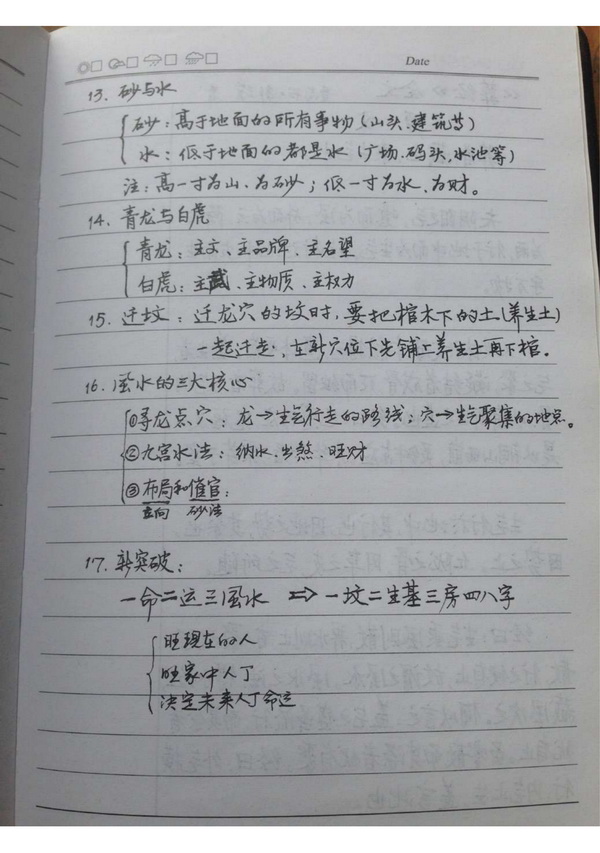 Date
13. 砂与水
砂：高于地面的所有事物（山头.建筑等）
水：低于地面的都是水（广场.码头,水池等）
注：高一寸为山.为砂；低一寸为水.为财。
14. 青龙与白虎
青龙：主文、主品牌、主名望
白虎：主武、主物质、主权力
15. 迁坟：迁龙穴的坟时,要把棺木下的土(养生土)
一起迁走,在新穴位下先铺上养生土再下棺。
16. 风水的三大核心
①寻龙点穴：龙→生气行走的路线；穴→生气聚集的地点。
②九宫水法：纳水.出煞.旺财
③布局和催官：
立向 砂法
17. 新突破：
一命二运三风水 => 一坟二生基三房四八字
旺现在的人
旺家中人丁
决定未来人丁命运